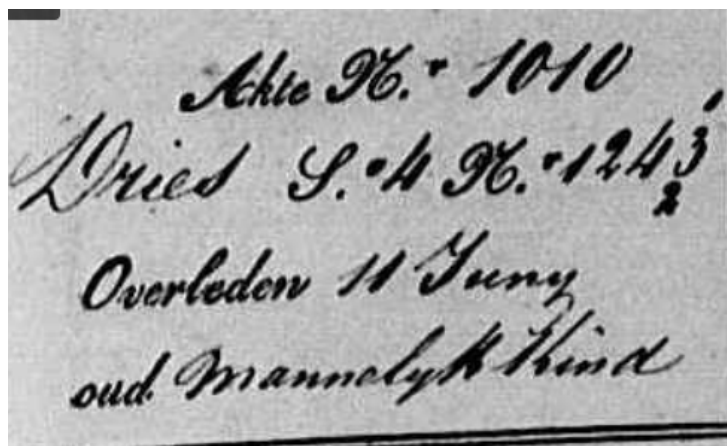 Akte N.r 1010
Dries S.e 4 N.r 1243
2
Overleden 11 Juny
oud Mannelyk Kind